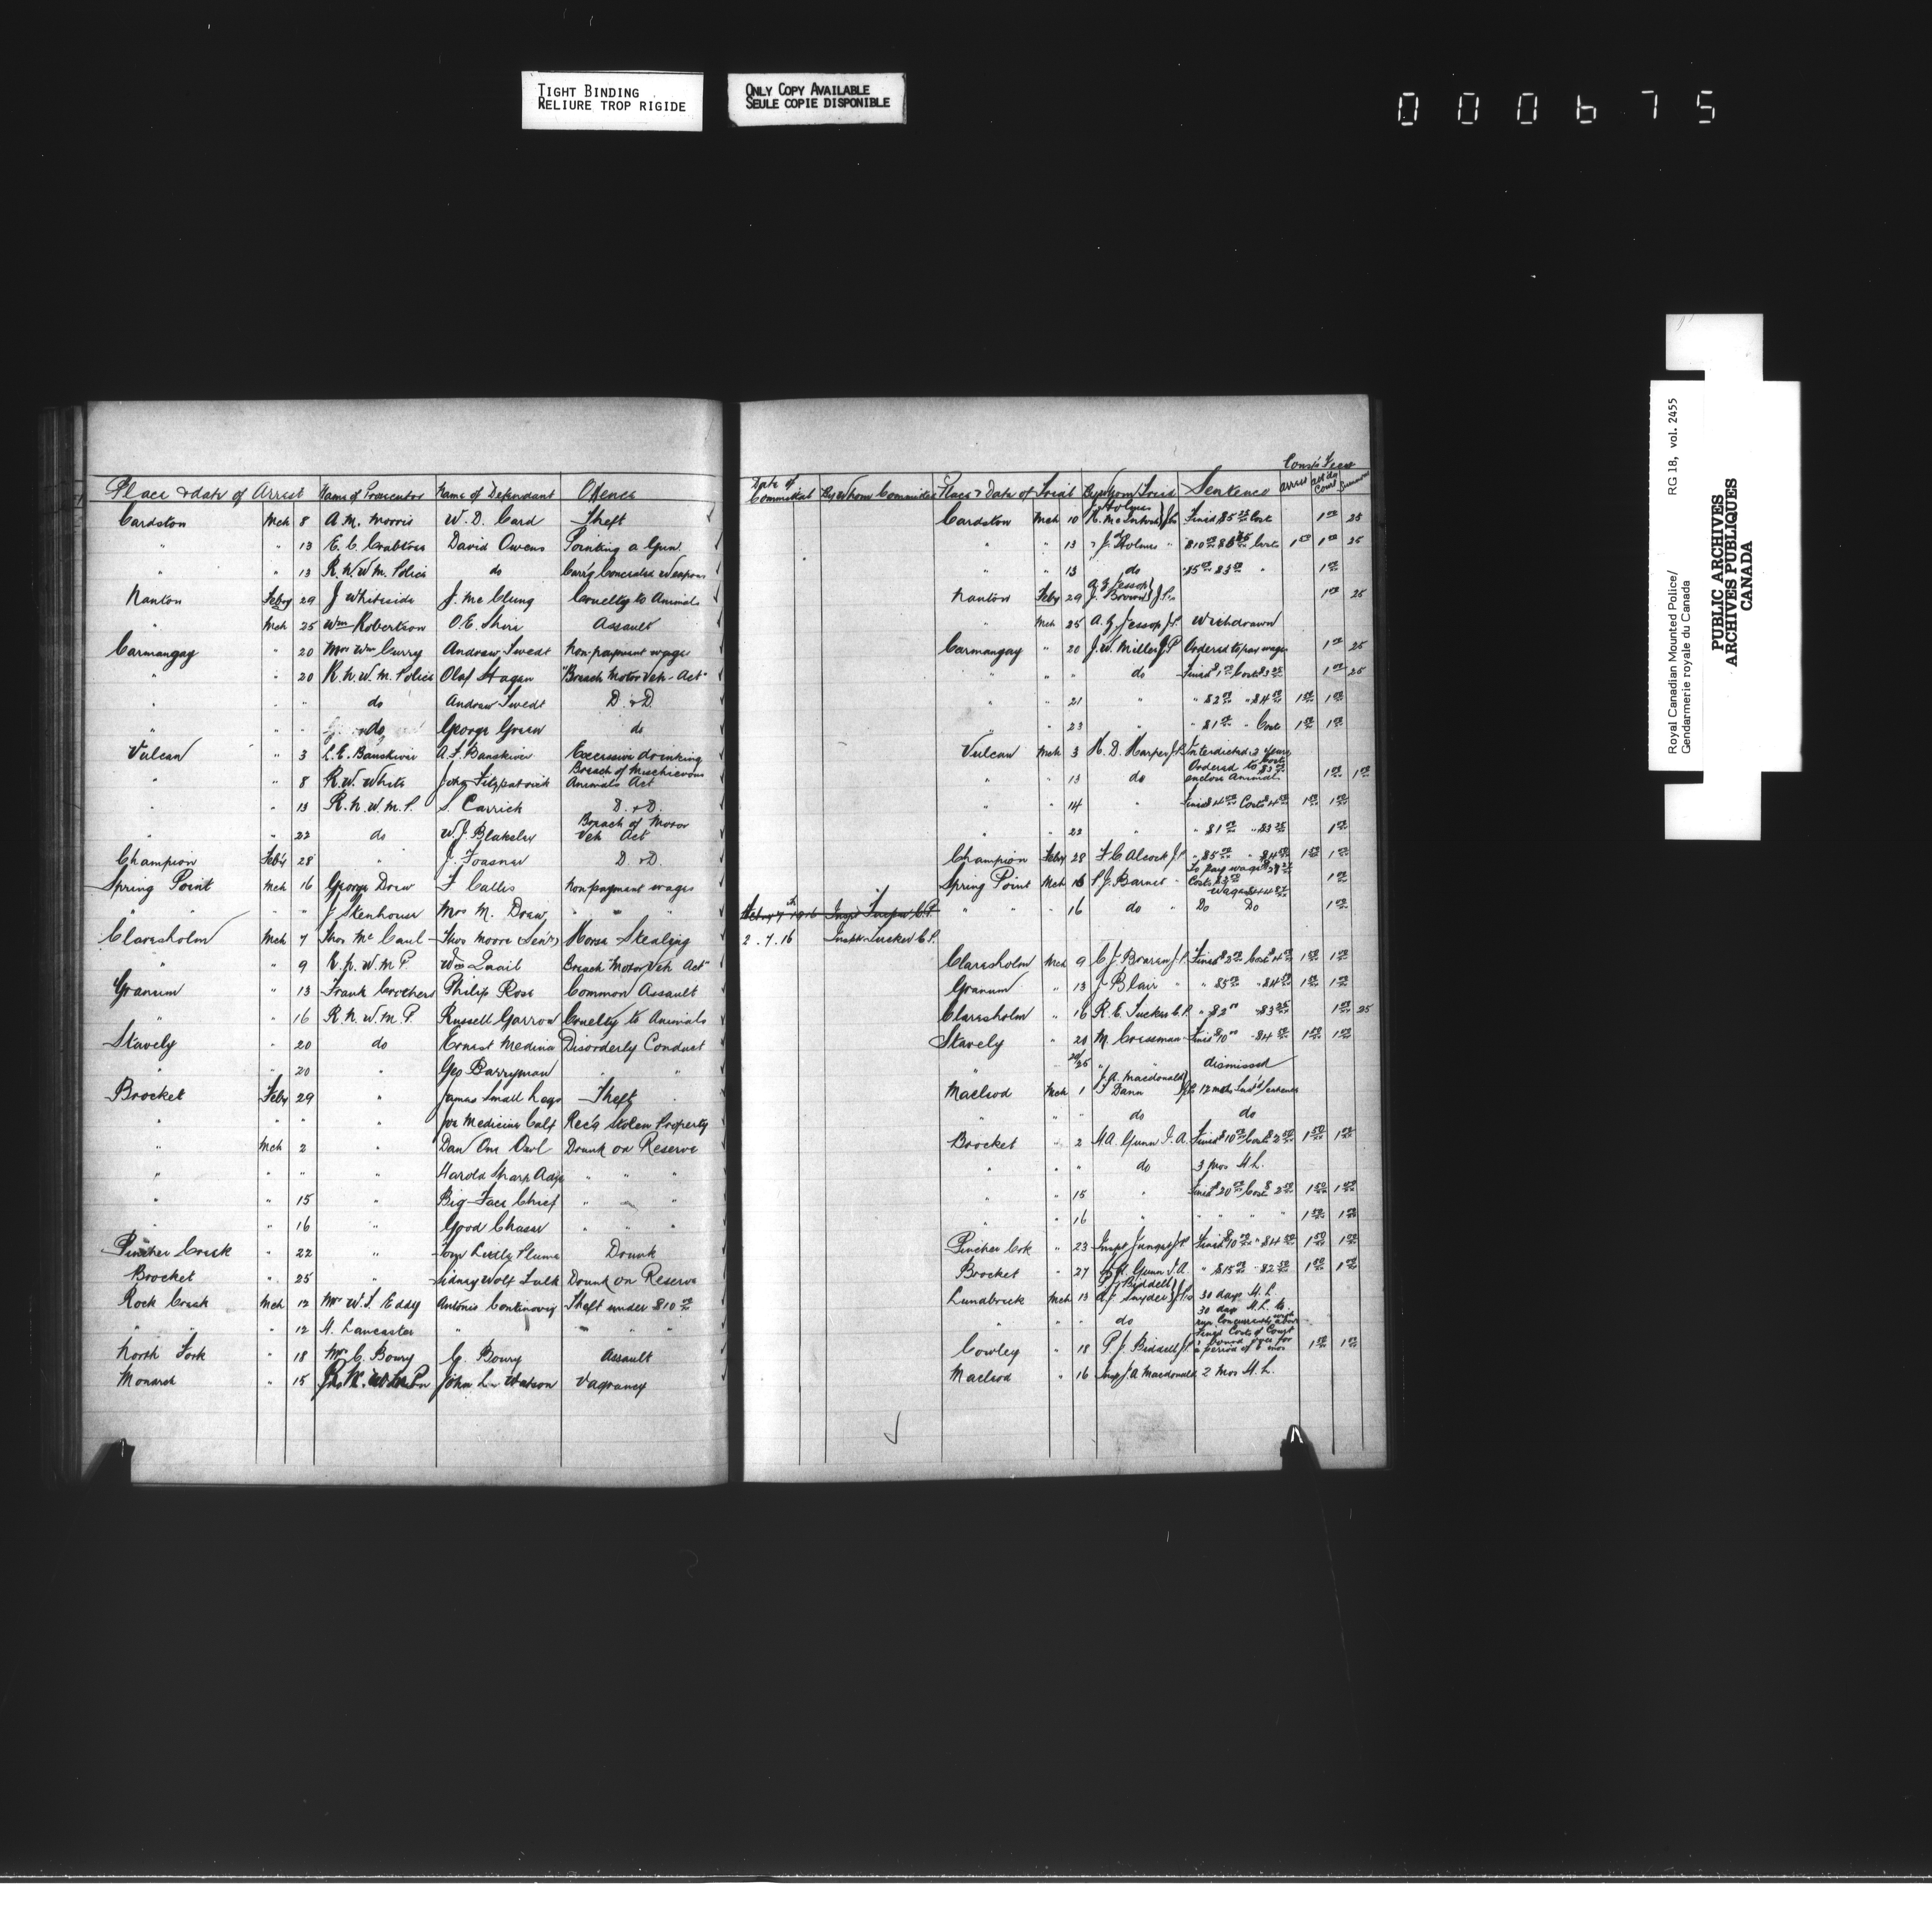 TIGHT BINDING
RELIURE TROP RIGIDE
ONLY COPY AVAILABLE
SEULE COPIE DISPONIBLE
000675
Royal Canadian Mounted Police/ RG 18, vol. 2455
Gendarmerie royale du Canada
PUBLIC ARCHIVES
ARCHIVES PUBLIQUES
CANADA
Const's Fees
Place & date of Arrest Name of Prosecutor Name of Defendant Offence Date of Committal By Whom Committed Place & Date of Trial By Whom Tried Sentence arrest att'dg Court Summons
Cardston Mch 8 A. M. Morris W. D. Card Theft Cardston Mch 10 J Holmes R. McIntosh JPs Fined $5 Cost 1 00 25
" " 13 David Owens Pointing a Gun " " 13 J. Holmes " $10 Costs 1 00 25
" " 13 R. N. W. M. Police do Carr'g Concealed Weapons " " 13 do $5 00 $3 " 1 00
Nanton Feby 29 J Whiteside J. McClung Cruelty to Animals Nanton Feby 29 A. G. Jessop J. Brown JPs 1 00 25
" Mch 25 Wm Robertson O. E. Assault " Mch 25 A. G. Jessop J.P. Withdrawn
Carmangay " 20 Mrs Wm Curry Andrew Swedt Non-payment wages Carmangay " 20 J. W. Miller J P Ordered to pay wages 1 00 25
" " 20 R. N. W. M. Police Olaf Hagan "Breach Motor Veh - Act" " " " do Fined $1 Costs $3 25 1 00 25
" " " do Andrew Swedt D. & D. " " 21 " " $2 00 " $4 50 1 50 1 00
" " " do George Green do " " 23 " " $1 00 " Cost 1 50 1 00
Vulcan " 3 L. E. Banskivir A. F. Banskivir Excessive drinking Vulcan Mch 3 H. D. Harper J.P. Interdicted 2 years
" " 8 R. W. White John Fitzpatrick Breach of Mischievous Animals Act " " 13 do Ordered to enclose animal 1 00
" " 13 R. N. W. M. P. S. Carrick D. & D. " " 14 " Fined $4 00 Costs $4 50 1 50 1 00
" " 22 do W. J. Blakslee Breach of Motor Veh Act " " 22 " " $1 00 " $3 25 1 00
Champion Feb'y 28 " J. D. & D. Champion Feby 28 F C Alcock J.P. " $5 00 " $4 50 1 50 1 00
Spring Point Mch 16 George Drew F Callis Non payment wages Spring Point Mch 16 P. J. Barnet " To pay wages 1 00
" " " J Stenhouse Mrs M. Drew " " " " " " 16 do " Do Do 1 00
Claresholm Mch 7 Thos McCaul Thos Moore (Senr) Horse Stealing 2 . 7 . 16 Inspr Tucker C. P.
" " 9 R. N. W. M P. Wm Quail Breach "Motor Veh Act" Claresholm Mch 9 C. J. J.P. Fined $2 00 Costs 1 50 1 00
Granum " 13 Frank Crothers Philip Rose Common Assault Granum " 13 J Blair " " $5 00 " $4 50 1 50 1 00
" " 16 R. N. W. M. P. Russell Garrow Cruelty to Animals Claresholm " 16 R. E. Tucker C. P. " $2 00 " $3 25 1 00 25
Stavely " 20 do Ernest Medina Disorderly Conduct Stavely " 20 M. Cressman Fined $10 00 " $4 50 1 50 1 00
" " 20 " Geo Barryman " " " 20/25 " " dismissed
Brocket Feby 29 " James Small Legs Theft Macleod Mch 1 J. A. Macdonald F Dann JPs 12 mths Susd Sentence
" " " " Joe Medicine Calf Rec'g Stolen Property " " " do do
" Mch 2 " Dan One Owl Drunk on Reserve Brocket " 2 H A. Gunn I. A. Fined $10 00 Costs $2 50 1 50 1 00
" " " " Harold Sharp Adge " " " " " " do 3 Mos H L.
" " 15 " Big Face Chief " " " " " 15 " Fined $20 00 Costs $2 50 1 50 1 00
" " 16 " Good Chaser " " " " " 16 " " " " 1 50 1 00
Pincher Creek " 22 " Tom Little Plume Drunk Pincher Crk " 23 Inspr Junget J.P. Fined $10 00 " $4 50 1 50 1 00
Brocket " 25 " Sidney Wolf Tail Drunk on Reserve Brocket " 27 H. A. Gunn I. A. " $15 00 " $2 50 1 50 1 00
Rock Creek Mch 12 Mr W. J. Eddy Antonio Continovig Theft under $10 00 Lundbreck Mch 13 P J Biddell A. J. Snyder JPs 30 days H. L
" " " 12 H. Lancaster " " " " " " do 30 days H. L. to run concurrently with above
North Fork " 18 Mrs C. Boury G. Boury Assault Cowley " 18 P. J. Biddell J.P. Fined Costs of Court & bound over for a period of 6 mos 1 50 1 00
Monarch " 15 John L. Watson Vagrancy Macleod " 16 Insp J. A Macdonald 2 Mos H. L.